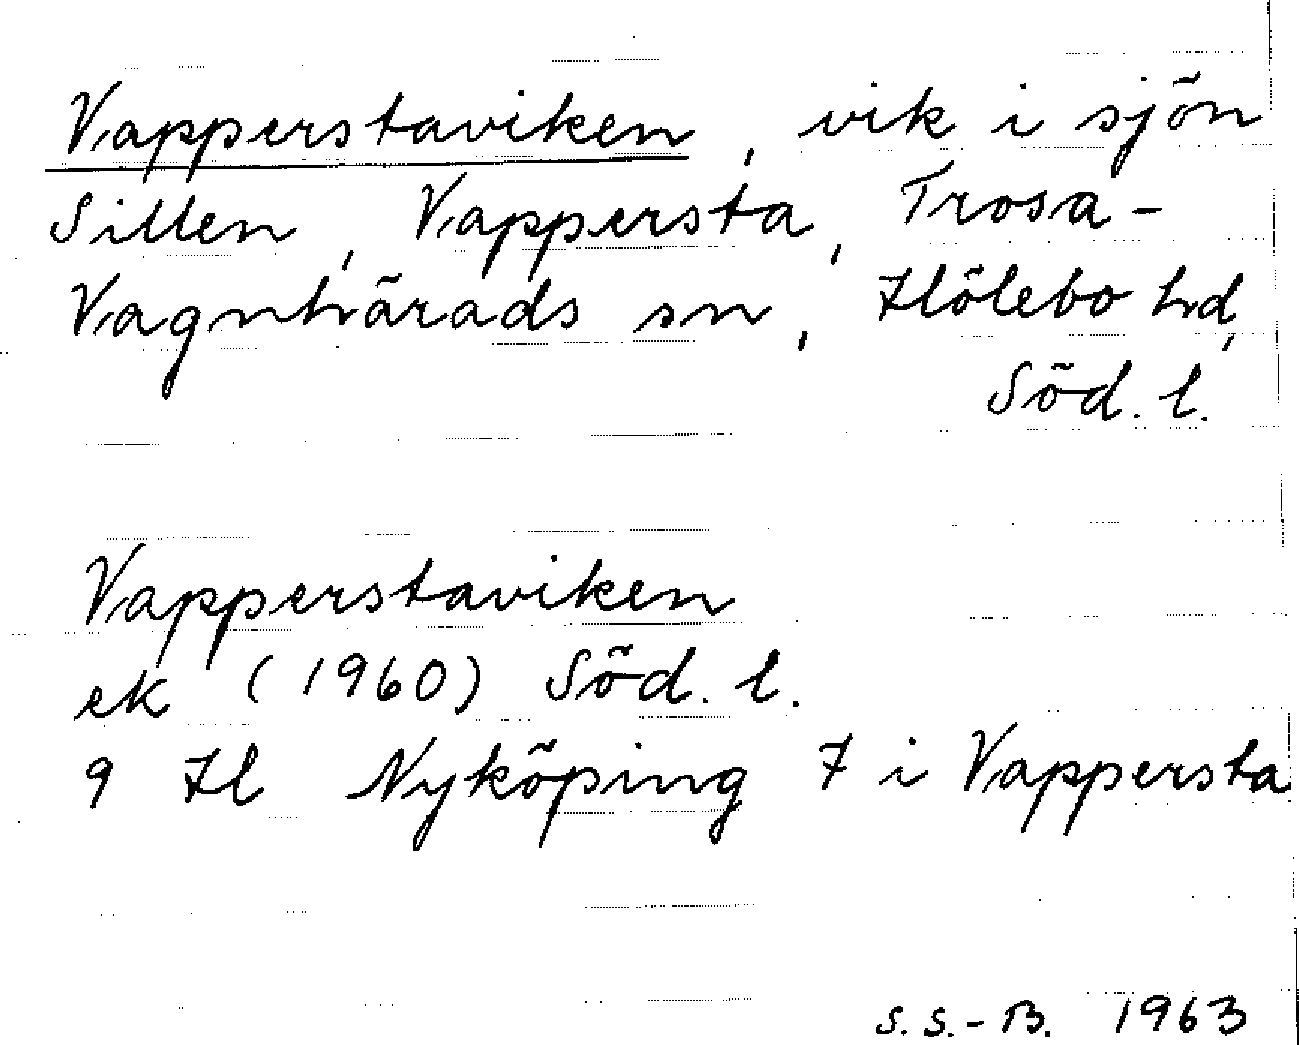 Vapperstaviken, vik i sjön
Sillen, Vappersta, Trosa-
Vagnhärads sn, Hölebo hd,
Söd. l.
Vapperstaviken
ek (1960) Söd. l.
9 Hl Nyköping 7 i Vappersta
S. S.-B. 1963